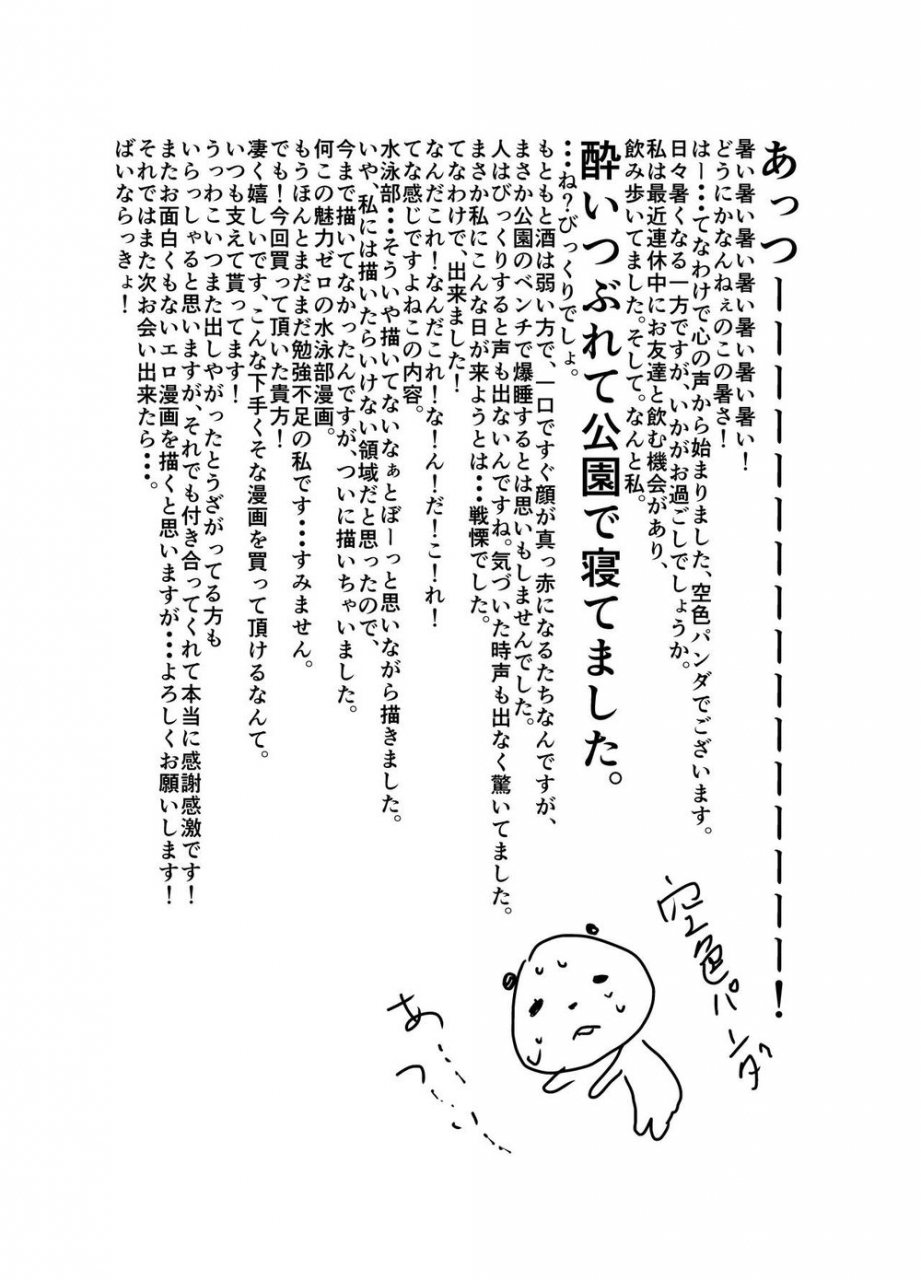 あっつーーーーーーーーーーーーーーーーーーーー！
暑い暑い暑い暑い暑い暑い暑い！
どうにかなんねぇのこの暑さ！
はー・・・てなわけで心の声から始まりました、空色パンダでございます。
日々暑くなる一方ですが、いかがお過ごしでしょうか。
私は最近連休中にお友達と飲む機会があり、
飲み歩いてました。そして。なんと私。
酔いつぶれて公園で寝てました。
・・・ね？びっくりでしょ。
もともと酒は弱い方で、一口ですぐ顔が真っ赤になるたちなんですが、
まさか公園のベンチで爆睡するとは思いもしませんでした。
人はびっくりすると声も出ないんですね。気づいた時声も出なく驚いてました。
まさか私にこんな日が来ようとは・・・戦慄でした。
てなわけで、出来ました！
なんだこれ！なんだこれ！な！ん！だ！こ！れ！
てな感じですよねこの内容。
水泳部・・・そういや描いてないなぁとぼーっと思いながら描きました。
いや、私には描いたらいけない領域だと思ったので、
今まで描いてなかったんですが、ついに描いちゃいました。
何この魅力ゼロの水泳部漫画。
もうほんとまだまだ勉強不足の私です・・・すみません。
でも！今回買って頂いた貴方！
凄く嬉しいです、こんな下手くそな漫画を買って頂けるなんて。
いつも支えて貰ってます！
うっわこいつまた出しやがったとうざがってる方も
いらっしゃると思いますが、それでも付き合ってくれて本当に感謝感激です！
またお面白くもないエロ漫画を描くと思いますが・・・よろしくお願いします！
それではまた次お会い出来たら・・・。
ばいならっきょ！
空色パンダ
あ・・・・
つ・・・・・